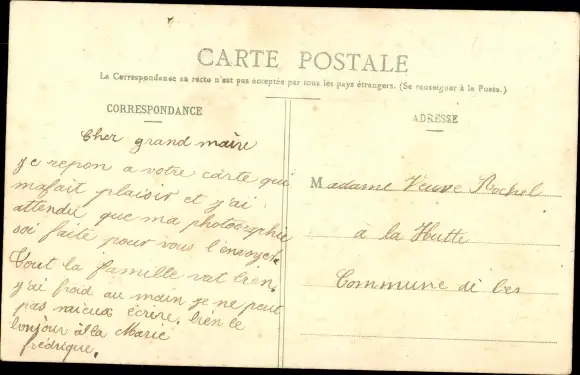 CARTE POSTALE
La Correspondance au recto n'est pas acceptée par tous les pays étrangers. (Se renseigner à la Poste.)
CORRESPONDANCE
Cher grand maire
je repon a votre carte qui
mafait plaisir et j'ai
attendu que ma photographie
soi faite pour vous l'envoyer.
Tout la famille vat bien.
j'ai froid au main je ne peut
pas mieux écrire. bien le
bonjour à la Marie
frédrique.
ADRESSE
Madame Veuve
à la Hutte
Commune de